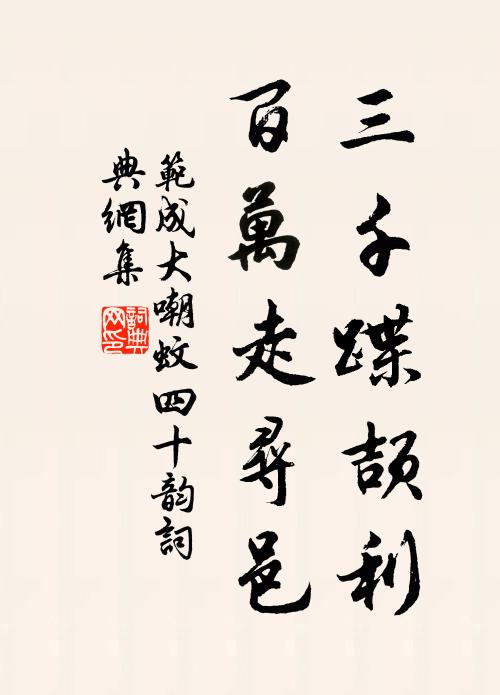 三千蹀頡利
百萬走尋邑
範成大嘲蚊四十韵詞
典網集
詞典网印